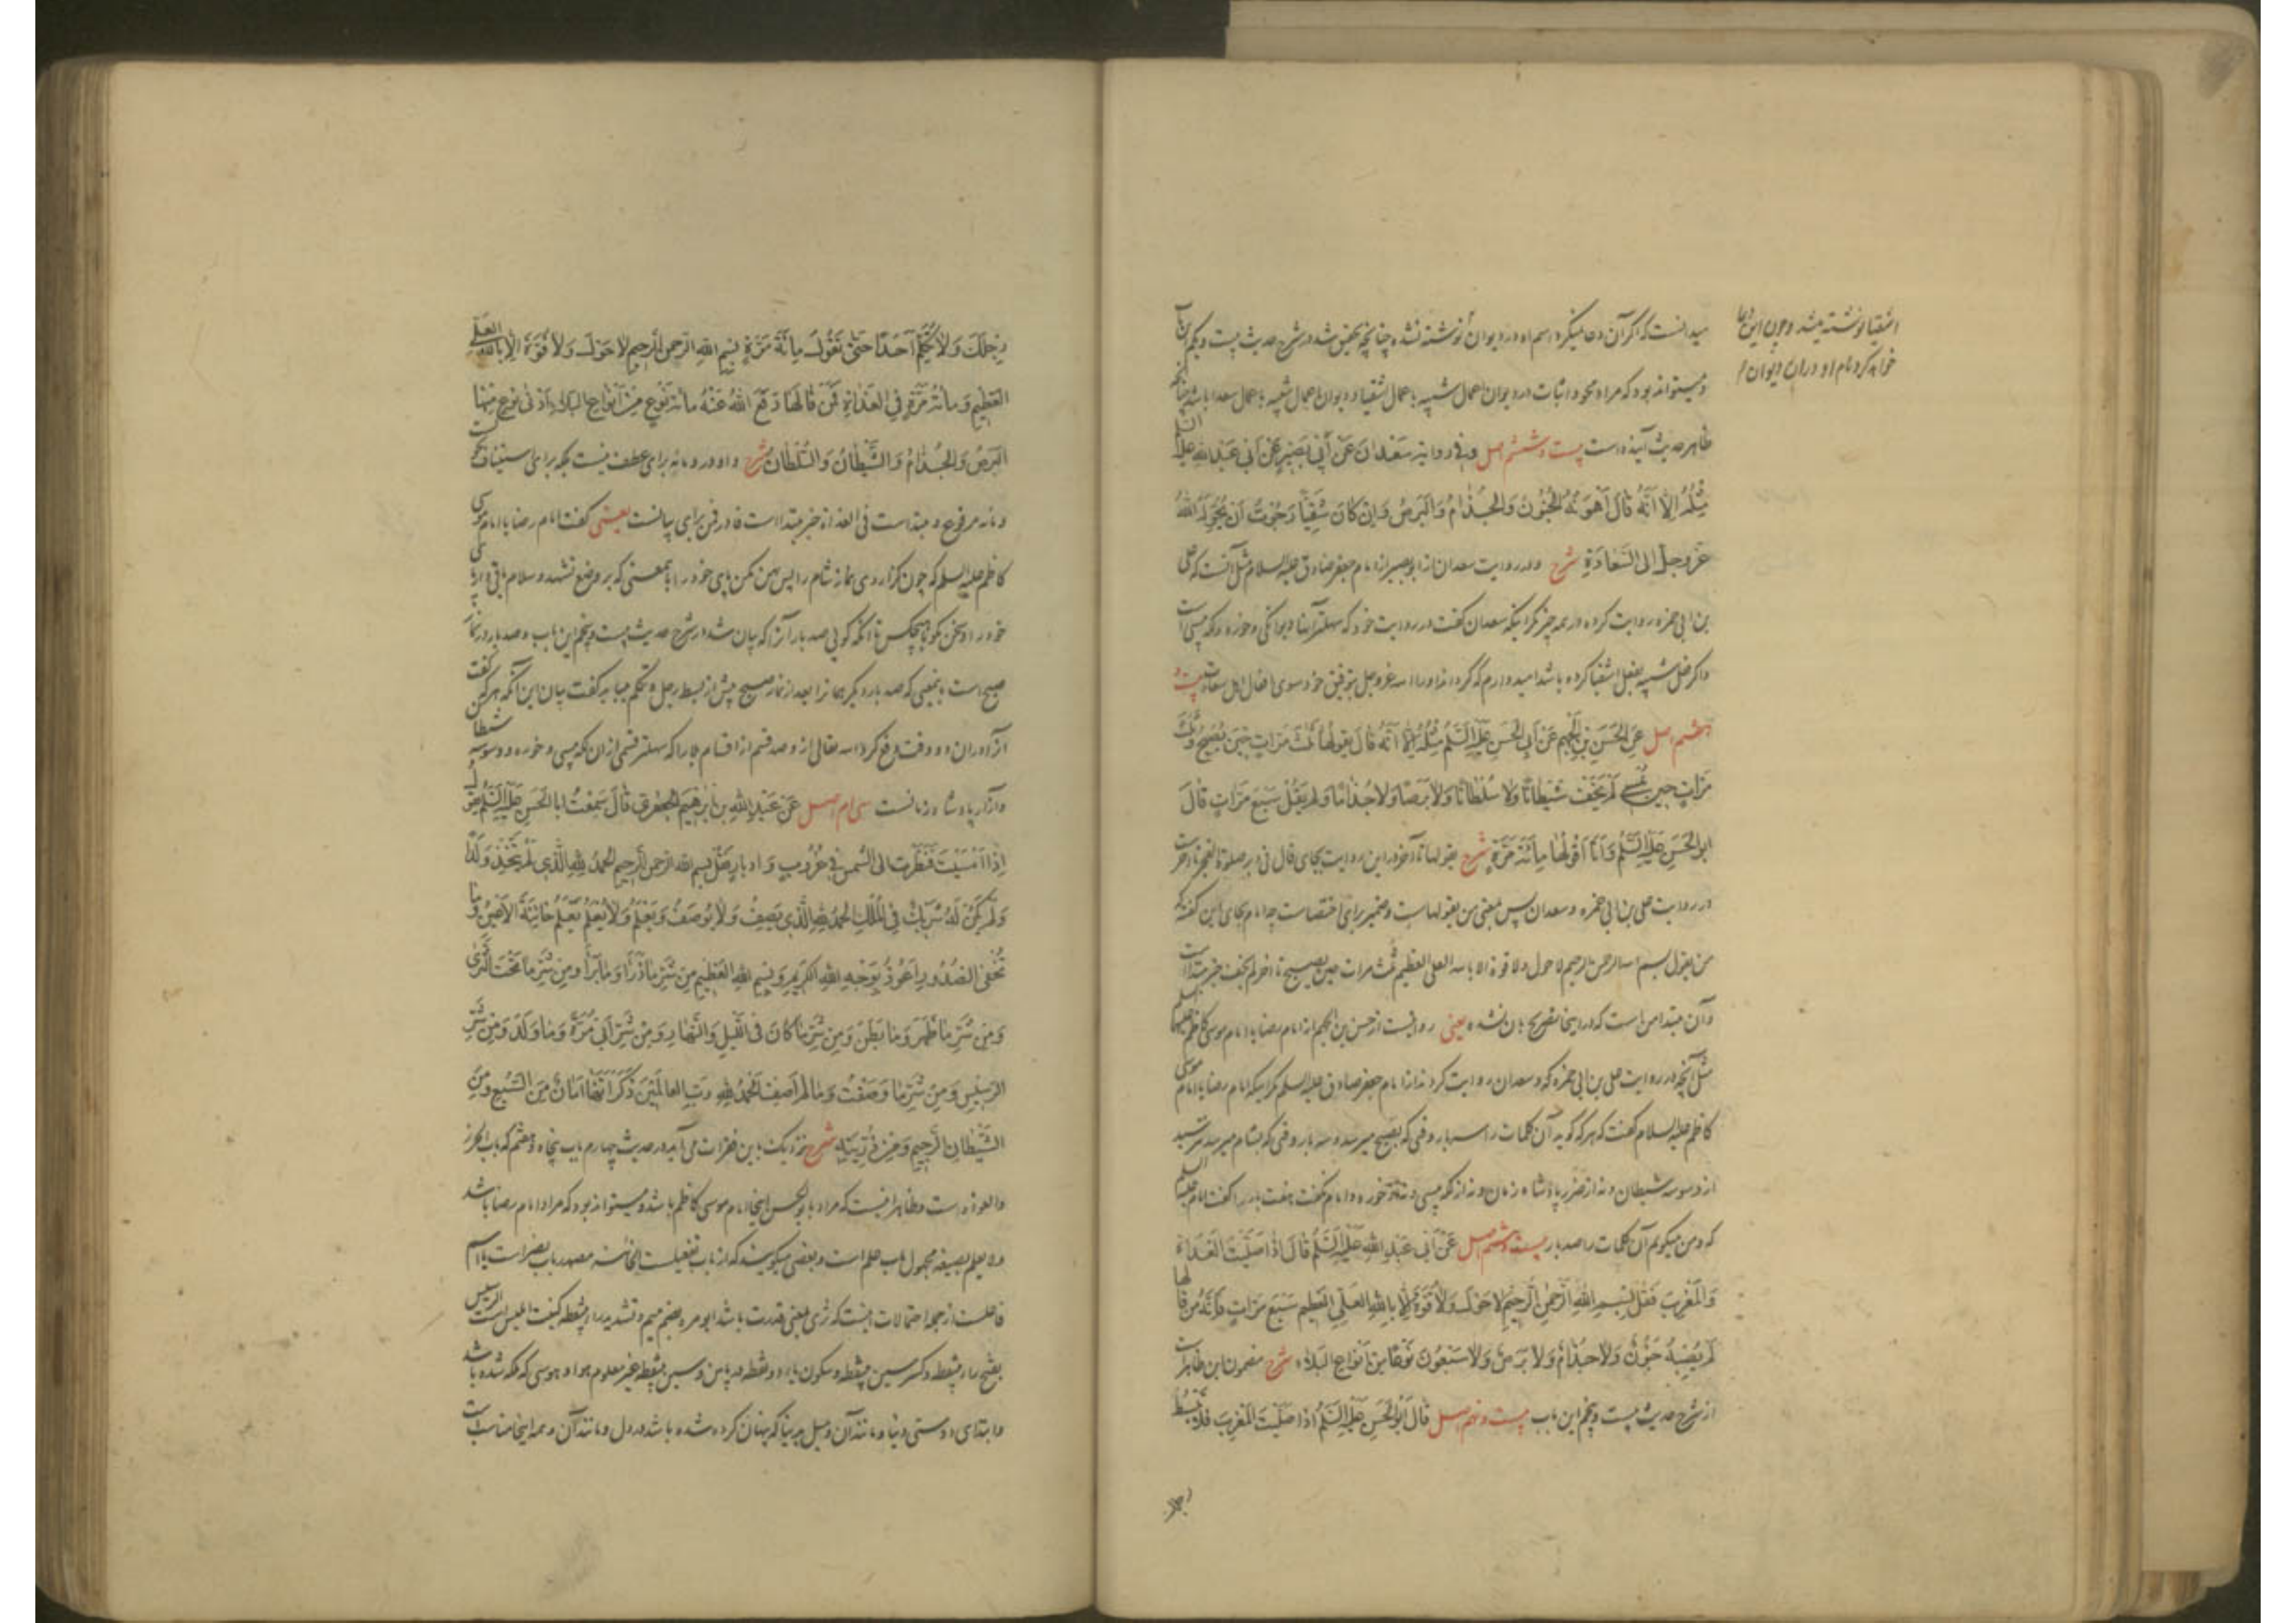 میدانست که اگر آن دعا میکرد اسم او در دیوان نوشته نشده چنانچه تحقیق شد در شرح حدیث بیست و یکم این باب
و میتواند بود که مراد محو و اثبات در دیوان اعمال شبیه باعمال اشقیا و دیوان اعمال شبیه باعمال سعدا باشد چنانچه
ظاهر حدیث آینده است بیست و ششم اصل وَفی رِوایَةِ سَعْدانَ عَنْ أَبی بَصیرٍ عَنْ أَبی عَبْدِ اللهِ عَلَیْهِ السَّلَمُ
مِثْلُهُ اِلّا اَنَّهُ قالَ اَهْوَنُهُ الْجُنُونُ وَالْجُذامُ وَالْبَرَصُ وَاِنْ کانَ شَقِیّاً رَجَوْتُ اَنْ یُحَوِّلَهُ اللهُ
عَزَّوَجَلَّ اِلَی السَّعادَةِ شرح و در روایت سعدان از ابو بصیر از امام جعفر صادق علیه السلام مثل آنست که علی
بن ابی حمزه روایت کرده در همه چیز مگر اینکه سعدان گفت در روایت خود که سهلتر آنها دیوانگی و خوره و لکه پیسی است
و اگر مثل شبیه بفعل اشقیا کرده باشد امید دارم که گرداند او را الله عزوجل بتوفیق خود سوی افعال اهل سعادت بیست و
هفتم اصل عَنِ الْحَسَنِ بْنِ الْجَهْمِ عَنْ اَبِی الْحَسَنِ عَلَیْهِ السَّلَمُ مِثْلُهُ اِلّا اَنَّهُ قالَ یَقُولُها ثَلثَ مَرّاتٍ حینَ یُصْبِحُ وَثَلثَ
مَرّاتٍ حینَ یُمْسی لَمْ یَخَفْ شَیْطاناً وَلا سُلْطاناً وَلا بَرَصاً وَلا جُذاماً وَلَمْ یَقُلْ سَبْعَ مَرّاتٍ قالَ
اَبُو الْحَسَنِ عَلَیْهِ السَّلَمُ وَاَنَا اَقُولُها مِائَةَ مَرَّةٍ شرح یقولها تا آخر در این روایت بجای قال فی دبر صلوة الفجر تا آخر است
در روایت علی بن ابی حمزه و سعدان پس بمعنی من یقولهاست و ضمیر برای اختصار است چه امام بجای این گفته که
من یقول بسم الله الرحمن الرحیم لاحول ولا قوة الا بالله العلی العظیم ثلث مرات حین یصبح تا آخر لم یخف خبر مبتداست
و آن مبتدا من است که در اینجا تصریح بآن نشده یعنی روایتست از حسن بن الجهم از امام رضا یا امام موسی کاظم علیهما السلم
مثل آنچه در روایت علی بن ابی حمزه که و سعدان روایت کردند از امام جعفر صادق علیه السلم مگر اینکه امام رضا یا امام موسی
کاظم علیه السلام گفت که هر که گوید آن کلمات را سه بار وقتی که بصبح میرسد و سه بار وقتی که بشام میرسد نترسید
از وسوسه شیطان و نه از ضرر پادشاه زمان و نه از لکه پیسی و نه خوره و امام نگفت هفت بار را گفت امام علیه السلم
که و من میگویم آن کلمات را صد بار بیست و هشتم اصل عَنْ اَبی عَبْدِ اللهِ عَلَیْهِ السَّلَمُ قالَ اِذا صَلَّیْتَ الْغَداةَ
وَالْمَغْرِبَ فَقُلْ بِسْمِ اللهِ الرَّحْمنِ الرَّحیمِ لاحَوْلَ وَلا قُوَّةَ اِلّا بِاللهِ الْعَلِیِّ الْعَظیمِ سَبْعَ مَرّاتٍ فَاِنَّهُ مَنْ قالَها
لَمْ یُصِبْهُ جُنُونٌ وَلا جُذامٌ وَلا بَرَصٌ وَلا سَبْعُونَ نَوْعاً مِنْ اَنْواعِ الْبَلاءِ شرح مضمون این ظاهر است
از شرح حدیث بیست و پنجم این باب بیست و نهم اصل قالَ اَبُو الْحَسَنِ عَلَیْهِ السَّلَمُ اِذا صَلَّیْتَ الْمَغْرِبَ فَلا تَبْسُطْ
اشقیا نوشته میشد و چون این دعا
خواهد کرد نام او در ان دیوان
رِجْلَکَ وَلا تُکَلِّمْ اَحَداً حَتّی تَقُولَ مِائَةَ مَرَّةٍ بِسْمِ اللهِ الرَّحْمنِ الرَّحیمِ لاحَوْلَ وَلا قُوَّةَ اِلّا بِاللهِ الْعَلِیِّ
الْعَظیمِ وَمِائَةَ مَرَّةٍ فِی الْغَداةِ فَمَنْ قالَها دَفَعَ اللهُ عَنْهُ مِائَةَ نَوْعٍ مِنْ اَنْواعِ الْبَلاءِ اَدْنی نَوْعٍ مِنْها
الْبَرَصُ وَالْجُذامُ وَالشَّیْطانُ وَالسُّلْطانُ شرح واو در و مائه برای عطف نیست بلکه برای استیناف است
و مائه مرفوع و مبتداست فی الغداة خبر مبتدا است فا در فمن برای بیانست یعنی گفت امام رضا یا امام موسی
کاظم علیه السلم که چون گزاردی نماز شام را پس پهن مکن پای خود را بمعنی که بر وضع تشهد و سلام باقی دار پای
خود را و سخن مگو با هیچکس تا آنکه گویی صد بار آنرا که بیان شد در شرح حدیث بیست و پنجم این باب و صد بار در نماز
صبح است بمعنی که صد بار دیگر همانرا بعد از نماز صبح پیش از بسط رجل و تکلم میباید گفت بیان این آنکه هر که گفت
آنرا در ان دو وقت دفع کرد الله تعالی از و صد قسم از اقسام بلا را که سهلتر قسمی از ان لکه پیسی و خوره و وسوسه شیطان
و آزار پادشاه زمانست سی ام اصل عَنْ عَبْدِ اللهِ بْنِ اِبْرهیمَ الْجَعْفَریِّ قالَ سَمِعْتُ اَبَا الْحَسَنِ عَلَیْهِ السَّلَمُ یَقُولُ
اِذا اَمْسَیْتَ فَنَظَرْتَ اِلَی الشَّمْسِ فی غُرُوبٍ وَاِدْبارٍ فَقُلْ بِسْمِ اللهِ الرَّحْمنِ الرَّحیمِ الْحَمْدُ لِلّهِ الَّذی لَمْ یَتَّخِذْ وَلَداً
وَلَمْ یَکُنْ لَهُ شَریکٌ فِی الْمُلْکِ الْحَمْدُ لِلّهِ الَّذی یَصِفُ وَلا یُوصَفُ وَیَعْلَمُ وَلا یُعْلَمُ یَعْلَمُ خائِنَةَ الْاَعْیُنِ وَما
تُخْفِی الصُّدُورُ اَعُوذُ بِوَجْهِ اللهِ الْکَریمِ وَبِسْمِ اللهِ الْعَظیمِ مِنْ شَرِّ ما ذَرَأَ وَما بَرَأَ وَمِنْ شَرِّ ما تَحْتَ الثَّری
وَمِنْ شَرِّ ما ظَهَرَ وَما بَطَنَ وَمِنْ شَرِّ ما کانَ فِی اللَّیْلِ وَالنَّهارِ وَمِنْ شَرِّ اَبی مُرَّةَ وَما وَلَدَ وَمِنْ شَرِّ
الرَّسیسِ وَمِنْ شَرِّ ما وَصَفْتُ وَما لَمْ اَصِفْ الْحَمْدُ لِلّهِ رَبِّ الْعالَمینَ ذَکَرَ اَنَّها اَمانٌ مِنَ السَّبُعِ وَمِنَ
الشَّیْطانِ الرَّجیمِ وَمِنْ ذُرِّیَّتِهِ شرح نزدیک باین فقرات می آید در حدیث چهارم باب پنجاه و هفتم که باب الحرز
والعوذه است و ظاهر اینست که مراد بابو الحسن اینجا امام موسی کاظم باشد و میتواند بود که مراد امام رضا باشد
ولا یعلم بصیغه مجهول باب علم است و بعضی میگویند که از باب تفعیلست الخائنه مصدر باب نصر است یا اسم
فاعلست از جمله احتمالات اینست که ثری بمعنی قدرت باشد ابو مره بضم میم و تشدید را بینقطه کنیت ابلیس است الرسیس
بفتح راء بینقطه و کسر سین بینقطه و سکون یاء دو نقطه در پایین و سین بینقطه غیر معلوم هوا و هوسی که محکم شده باشد
و ابتدای دوستی دنیا و مانند آن و میل بدینا که پنهان کرده شده باشد در دل و مانند آن و همه اینجا مناسب است